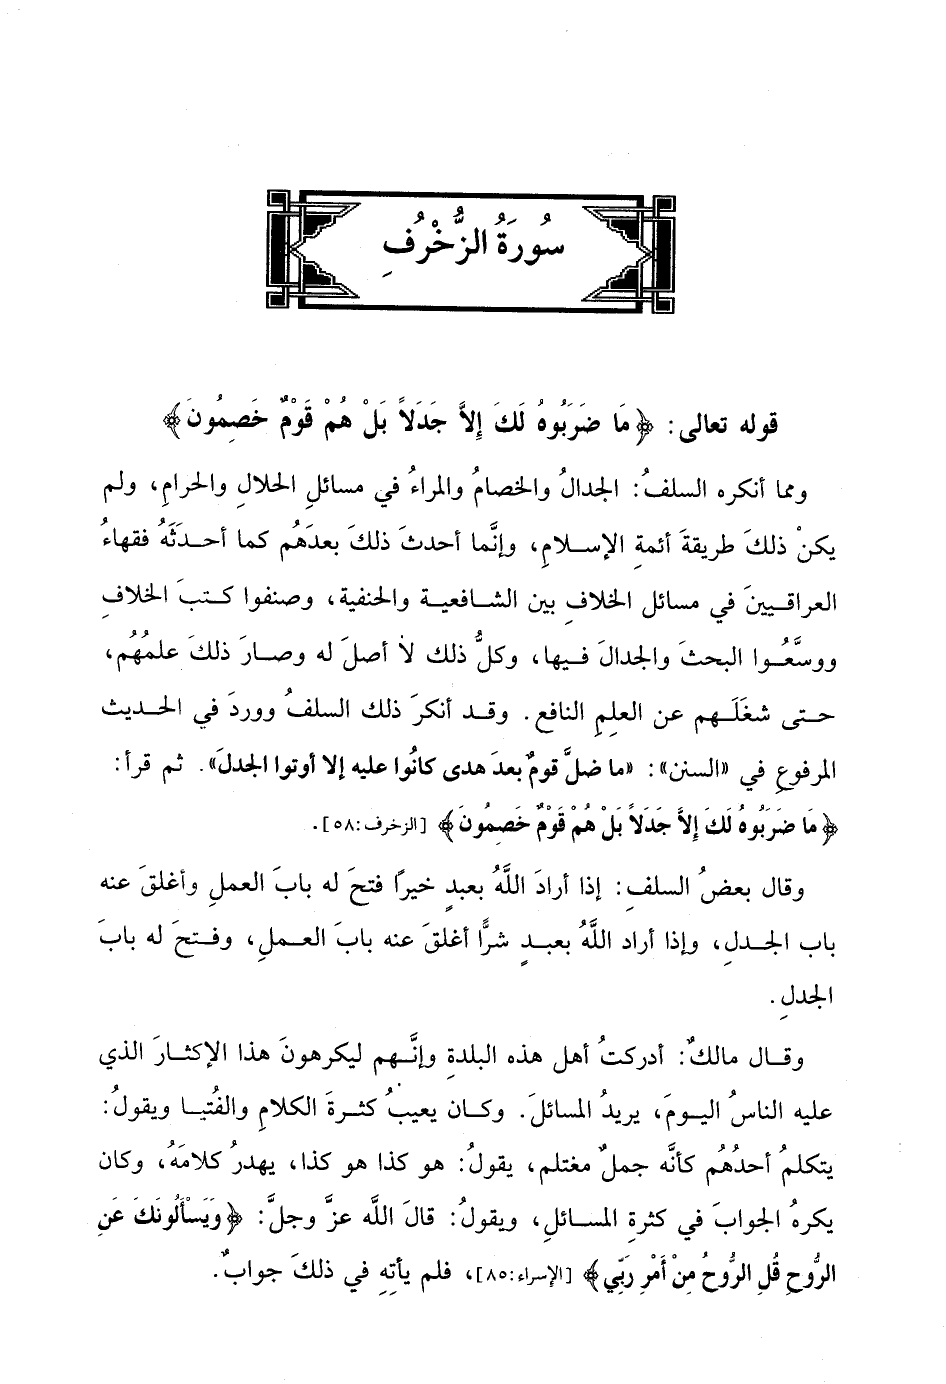 سُورَةُ الزُّخْرُفِ
قوله تعالى: ﴿مَا ضَرَبُوهُ لَكَ إِلاَّ جَدَلاً بَلْ هُمْ قَوْمٌ خَصِمُونَ﴾
ومما أنكره السلفُ: الجدالُ والخصامُ والمراءُ في مسائلِ الحلالِ والحرامِ، ولم
يكنْ ذلكَ طريقةَ أئمةِ الإسلامِ، وإنَّما أحدثَ ذلكَ بعدَهُم كما أحدثَهُ فقهاءُ
العراقيينَ في مسائل الخلافِ بين الشافعية والحنفية، وصنفوا كتبَ الخلافِ
ووسَّعُوا البحثَ والجدالَ فيها، وكلُّ ذلك لا أصلَ له وصارَ ذلكَ علمُهُم،
حتى شغَلَهم عن العلمِ النافعِ. وقد أنكرَ ذلك السلفُ ووردَ في الحديث
المرفوعِ في «السنن»: «ما ضلَّ قومٌ بعدَ هدى كانُوا عليه إلا أوتوا الجدلَ». ثم قرأَ:
﴿مَا ضَرَبُوهُ لَكَ إِلاَّ جَدَلاً بَلْ هُمْ قَوْمٌ خَصِمُونَ﴾ [الزخرف:٥٨].
وقال بعضُ السلفِ: إذا أرادَ اللَّهُ بعبدٍ خيرًا فتحَ له بابَ العملِ وأغلقَ عنه
باب الجدلِ، وإذا أراد اللَّهُ بعبدٍ شرًّا أغلقَ عنه بابَ العملِ، وفتحَ له بابَ
الجدلِ.
وقال مالكٌ: أدركتُ أهل هذه البلدةِ وإنَّهم ليكرهونَ هذا الإكثارَ الذي
عليه الناسُ اليومَ، يريدُ المسائلَ. وكان يعيبُ كثرةَ الكلامِ والفُتيا ويقولُ:
يتكلمُ أحدُهُم كأنَّه جملٌ مغتلم، يقولُ: هو كذا هو كذا، يهدرُ كلامَهُ، وكان
يكرهُ الجوابَ في كثرةِ المسائلِ، ويقولُ: قالَ اللَّه عزَّ وجلَّ: ﴿وَيَسْأَلُونَكَ عَنِ
الرُّوحِ قُلِ الرُّوحُ مِنْ أَمْرِ رَبِّي﴾ [الإسراء:٨٥]، فلم يأتِهِ في ذلكَ جوابٌ.